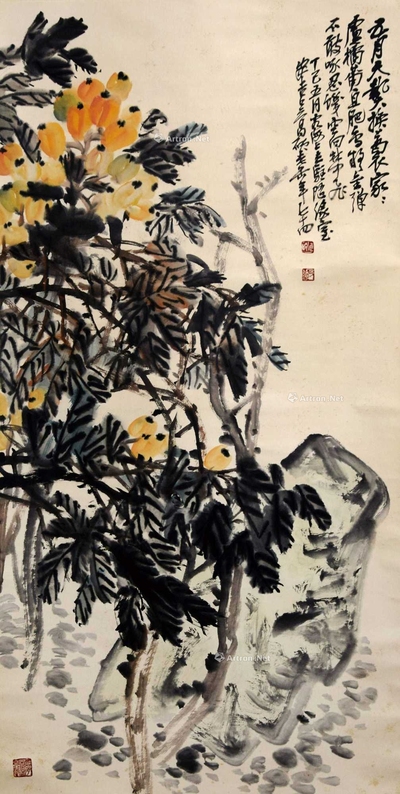 五月天熱換葛衣家〻
盧橘黃且肥鳥疑金彈
不敢啄忍饑空向林中飛
丁巳五月去駐隨緣室
安吉吳昌碩老缶年七十四
Artron.Net
Artron.Net
Artron.Net